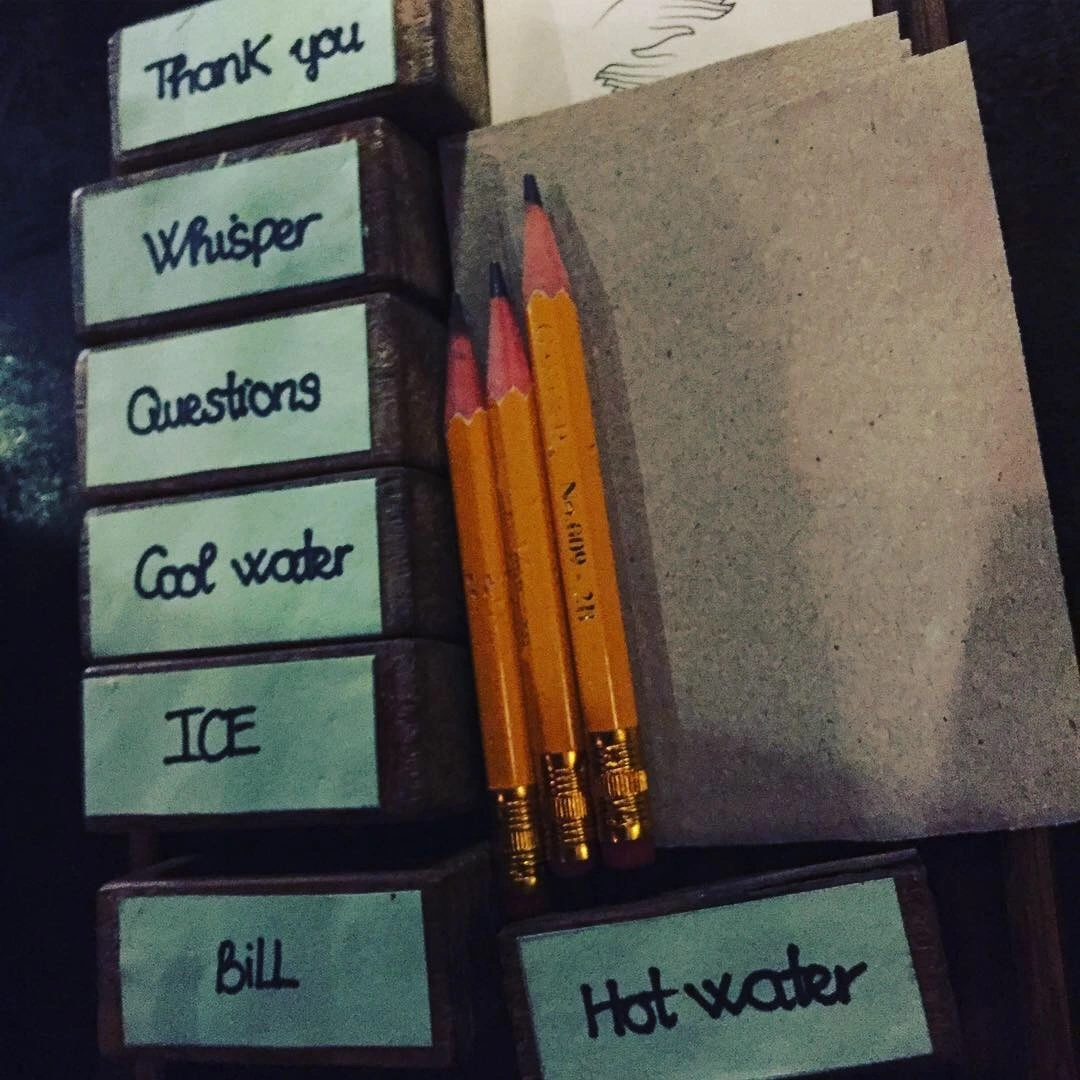 Thank you
Whisper
Questions
Cool water
ICE
Bill
Hot water
No 009 - 2B